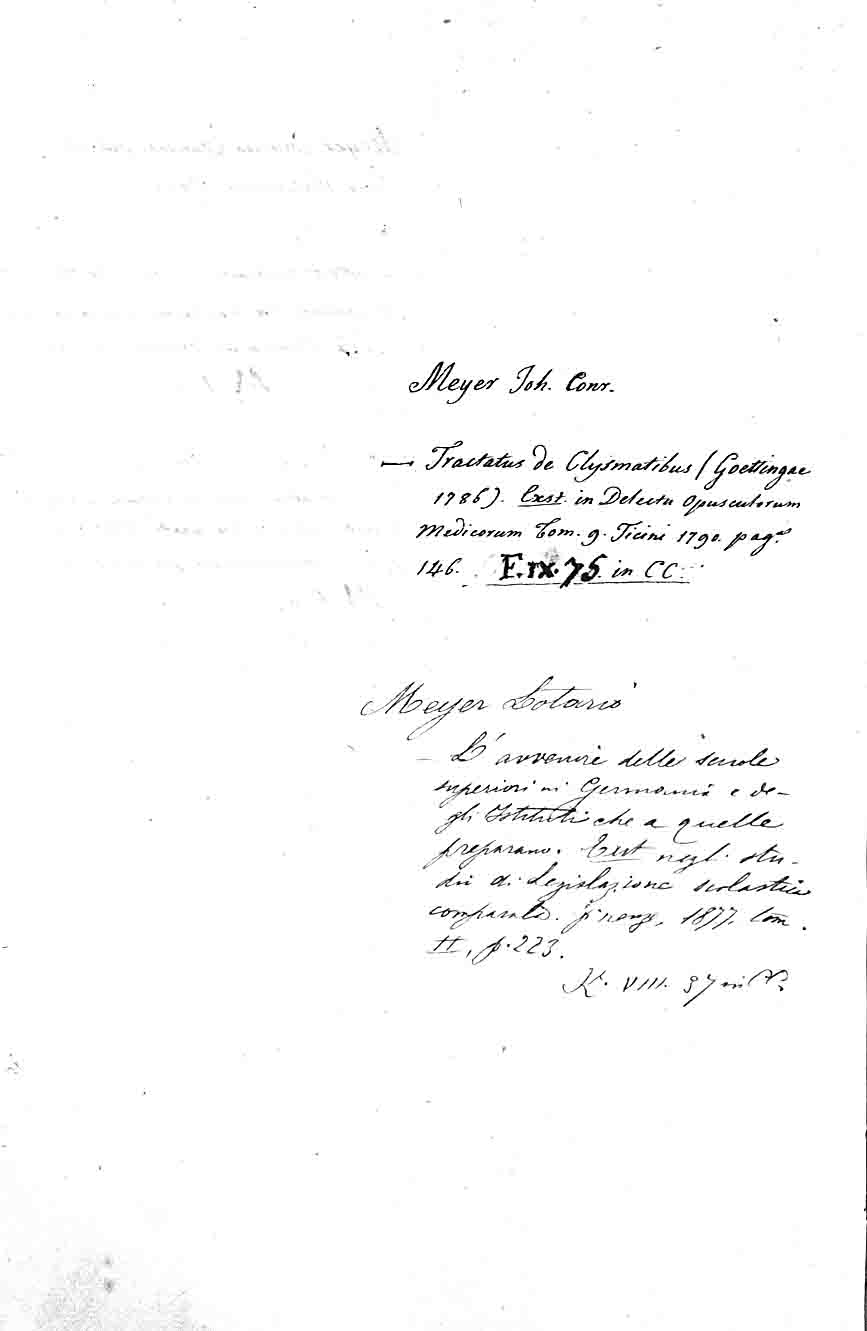 Meyer Joh. Conr.
— Tractatus de Clysmatibus (Goettingae
1786). Exst. in Delectu Opusculorum
Medicorum Tom. 9. Ticini 1790. pag.
146. F.IX.75. in CC.
Meyer Lotario
— L'avvenire delle scuole
superiori in Germania e de-
gli Istituti che a quelle
preparano. Exst negl. stu-
dii di Legislazione scolastica
comparata. Firenze, 1877. tom.
II, p. 223.
K. VIII. 37 in